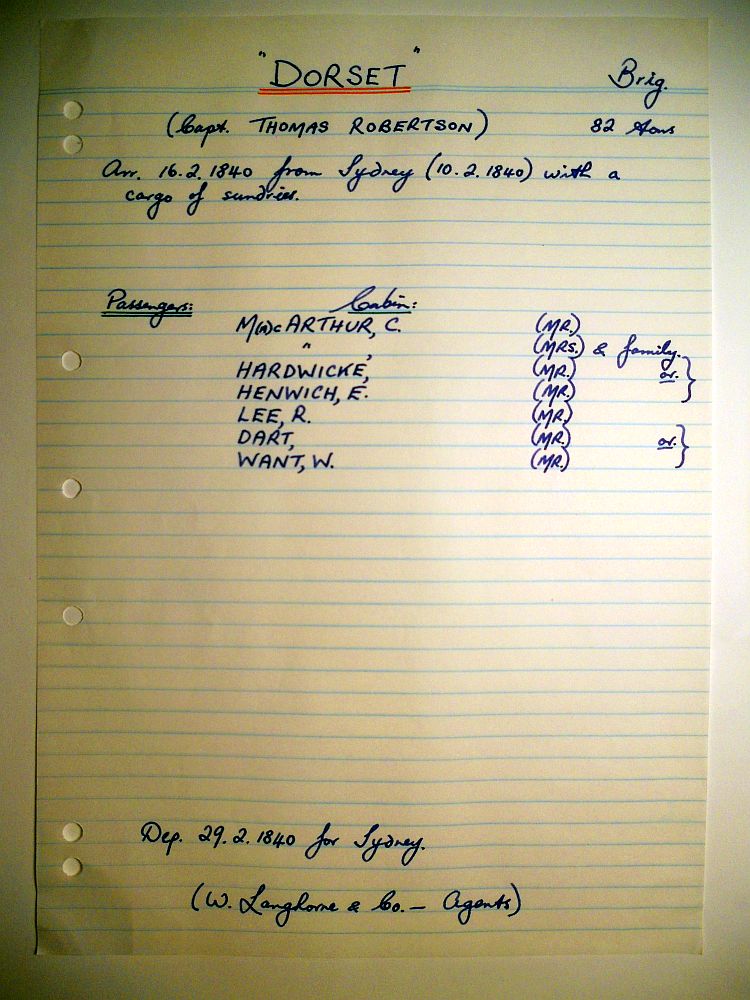 "DORSET" Brig.
(Capt. THOMAS ROBERTSON) 82 tons
Arr. 16.2.1840 from Sydney (10.2.1840) with a
cargo of sundries.
Passengers: Cabin:
M(a)cARTHUR, C. (MR.)
" , (MRS.) & family.
HARDWICKE, (MR.) or. }
HENWICH, E. (MR.)
LEE, R. (MR.)
DART, (MR.) or. }
WANT, W. (MR.)
Dep. 29.2.1840 for Sydney.
(W. Langhorne & Co. — Agents)